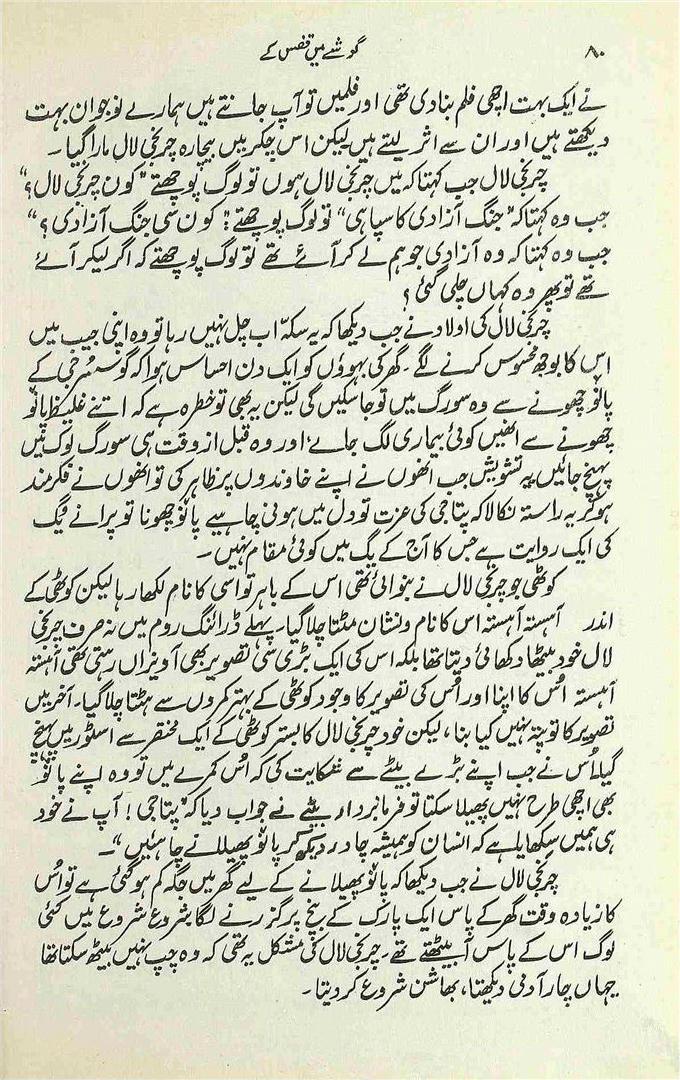 ۸۰
گوشے میں قفس کے
نے ایک بہت اچھی فلم بنادی تھی اور فلمیں تو آپ جانتے ہیں ہمارے نوجوان بہت
دیکھتے ہیں اور ان سے اثر لیتے ہیں لیکن اس چکر میں بیچارہ چرنجی لال مارا گیا۔
چرنجی لال جب کہتا کہ میں چرنجی لال ہوں تو لوگ پوچھتے "کون چرنجی لال؟"
جب وہ کہتا کہ "جنگ آزادی کا سپاہی" تو لوگ پوچھتے: کون سی جنگ آزادی؟"
جب وہ کہتا کہ وہ آزادی جو ہم لے کر آئے تھے تو لوگ پوچھتے کہ اگر لیکر آئے
تھے تو پھر وہ کہاں چلی گئی؟
چرنجی لال کی اولاد نے جب دیکھا کہ یہ سکہ اب چل نہیں رہا تو وہ اپنی جیب میں
اس کا بوجھ محسوس کرنے لگے۔ گھر کی بہوؤں کو ایک دن احساس ہوا کہ گو سسر جی کے
پانؤ چھونے سے وہ سورگ میں تو جا سکیں گی لیکن یہ بھی تو خطرہ ہے کہ اتنے غلیظ پانؤ
چھونے سے انھیں کوئی بیماری لگ جائے اور وہ قبل از وقت ہی سورگ لوک میں
پہنچ جائیں یہ تشویش جب انھوں نے اپنے خاوندوں پر ظاہر کی تو انھوں نے فکرمند
ہو کر یہ راستہ نکالا کہ پتاجی کی عزت تو دل میں ہونی چاہیے پانؤ چھونا تو پرانے یُگ
کی ایک روایت ہے جس کا آج کے یگ میں کوئی مقام نہیں۔
کوٹھی جو چرنجی لال نے بنوائی تھی اس کے باہر تو اسی کا نام لکھا رہا لیکن کوٹھی کے
اندر آہستہ آہستہ اس کا نام و نشان مٹتا چلا گیا۔ پہلے ڈرائنگ روم میں نہ صرف چرنجی
لال خود بیٹھا دکھائی دیتا تھا بلکہ اس کی ایک بڑی سی تصویر بھی آویزاں رہتی تھی آہستہ
آہستہ اُس کا اپنا اور اُس کی تصویر کا وجود کوٹھی کے بہتر کمروں سے ہٹتا چلا گیا۔ آخر میں
تصویر کا تو پتہ نہیں کیا بنا، لیکن خود چرنجی لال کا بستہ کوٹھی کے ایک مختصر سے اسٹور میں پہنچ
گیا۔ اُس نے جب اپنے بڑے بیٹے سے شکایت کی کہ اُس کمرے میں تو وہ اپنے پانؤ
بھی اچھی طرح نہیں پھیلا سکتا تو فرمانبردار بیٹے نے جواب دیا کہ "پتاجی! آپ نے خود
ہی ہمیں سکھایا ہے کہ انسان کو ہمیشہ چادر دیکھ کر پانؤ پھیلانے چاہئیں"۔
چرنجی لال نے جب دیکھا کہ پانؤ پھیلانے کے لیے گھر میں جگہ کم ہو گئی ہے تو اُس
کا زیادہ وقت گھر کے پاس ایک پارک کے بنچ پر گزرنے لگا۔ شروع شروع میں کئی
لوگ اس کے پاس آ بیٹھتے تھے۔ چرنجی لال کی مشکل یہ تھی کہ وہ چپ نہیں بیٹھ سکتا تھا
جہاں چار آدمی دیکھتا، بھاشن شروع کر دیتا۔